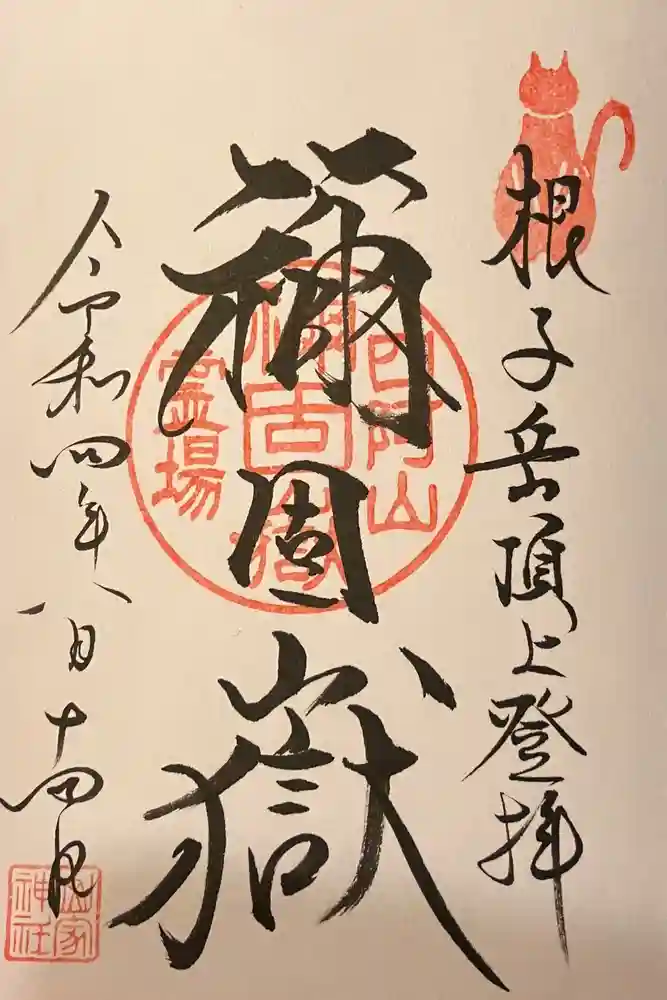 根子岳頂上登拝
禰固嶽
四阿山
禰固嶽
霊場
令和四年八月十四日
山家
神社